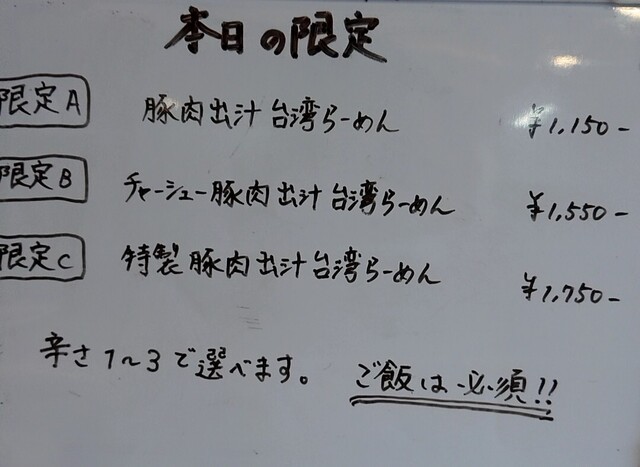 本日の限定
限定A 豚肉出汁台湾らーめん ¥1,150-
限定B チャーシュー豚肉出汁台湾らーめん ¥1,550-
限定C 特製豚肉出汁台湾らーめん ¥1,750-
辛さ1~3で選べます。 ご飯は必須!!